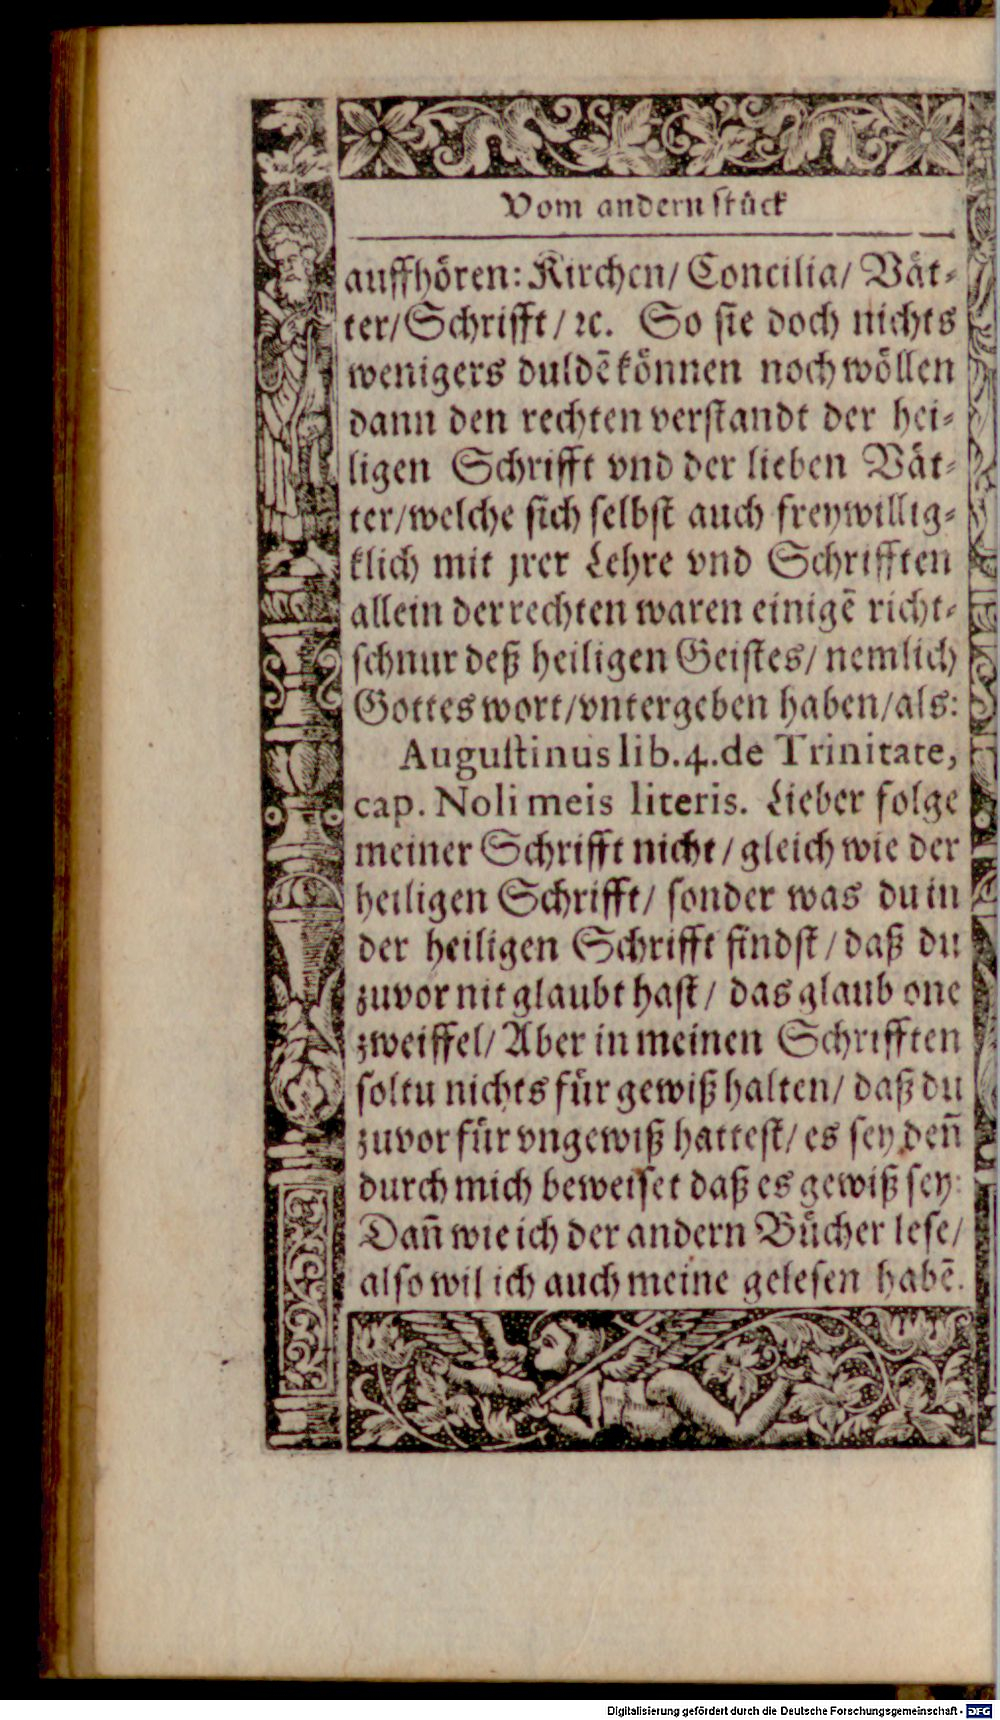 Vom andern stück
auffhören: Kirchen/ Concilia/ Vät-
ter/Schrifft/ ꝛc. So sie doch nichts
wenigers duldē können noch wöllen
dann den rechten verstandt der hei-
ligen Schrifft vnd der lieben Vät-
ter/welche sich selbst auch freywillig-
klich mit jrer Lehre vnd Schrifften
allein der rechten waren einigē richt-
schnur deß heiligen Geistes/ nemlich
Gottes wort/vntergeben haben/als:
Augustinus lib. 4. de Trinitate,
cap. Noli meis literis. Lieber folge
meiner Schrifft nicht/ gleich wie der
heiligen Schrifft/ sonder was du in
der heiligen Schrifft findst/ daß du
zuvor nit glaubt hast/ das glaub one
zweiffel/ Aber in meinen Schrifften
soltu nichts für gewiß halten/ daß du
zuvor für vngewiß hattest/ es sey den̄
durch mich beweiset daß es gewiß sey:
Dan̄ wie ich der andern Bücher lese/
also wil ich auch meine gelesen habē.
Digitalisierung gefördert durch die Deutsche Forschungsgemeinschaft - DFG